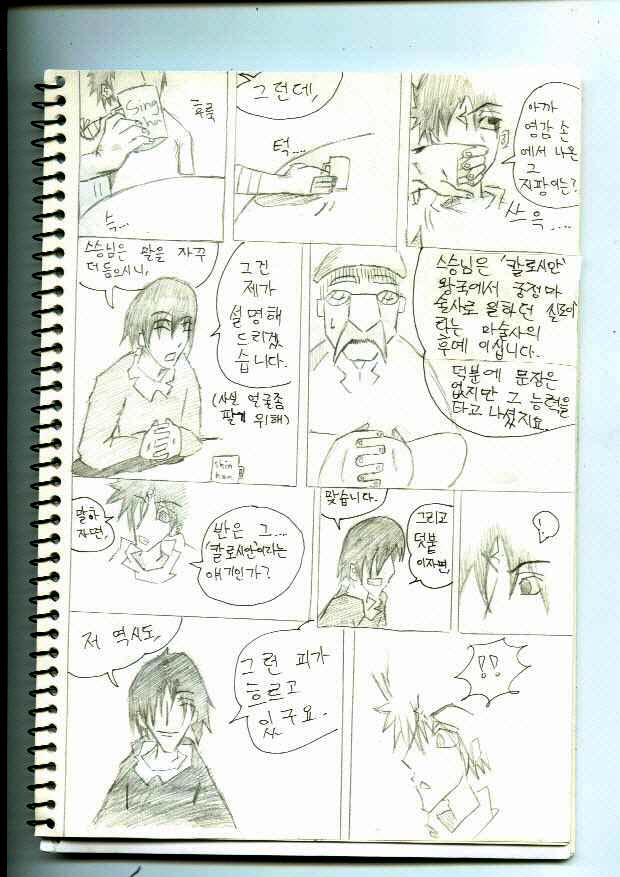 후룩
그런데,
턱...
슥...
아까
영감 손
에서 나온
그
지팡이는?
스윽....
스승님은 말을 자꾸
더듬으시니,
그건
제가
설명해
드리겠
습니다.
(사실 얼굴좀
팔기 위해)
Shin
han
스승님은 '칼로시안'
왕국에서 궁정마
술사로 일하던
라는 마술사의
후예 이십니다.
덕분에 문장은
없지만 그 능력을
타고 나셨지요.
말하
자면,
반은 그...
'칼로시안'이라는
얘기인가?
맞습니다.
그리고
덧붙
이자면
!
저 역시도,
그런 피가
흐르고
있구요.
!!